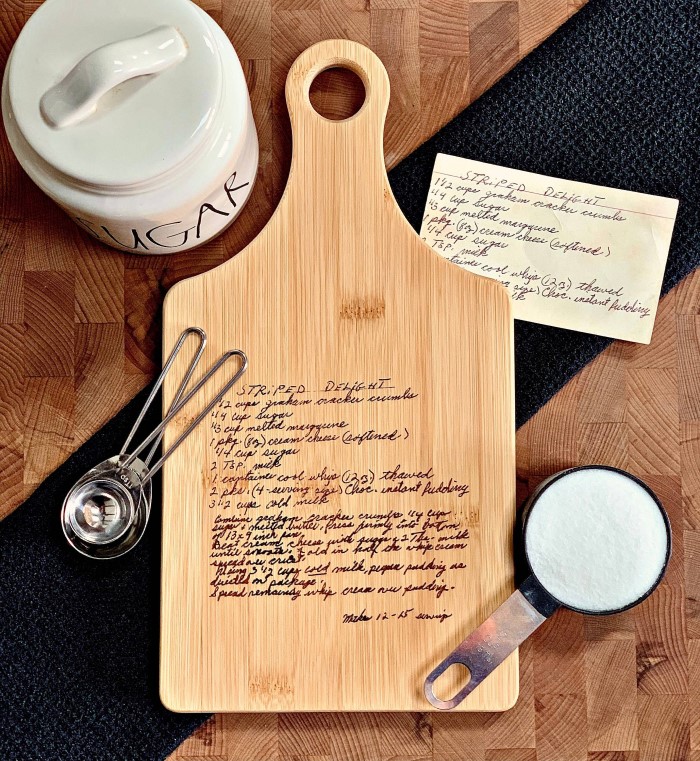 SUGAR
STRIPED DELIGHT
1 1/2 cups graham cracker crumbs
1/4 cup sugar
1/3 cup melted margarine
1 pkg. (8oz) cream cheese (softened)
1/4 cup sugar
2 Tsp. milk
container cool whip (12oz) thawed
serving size) Choc. instant pudding
milk
STRIPED DELIGHT
1 1/2 cups graham cracker crumbs
1/4 cup sugar
1/3 cup melted margarine
1 pkg. (8oz) cream cheese (softened)
1/4 cup sugar
2 Tsp. milk
1 container cool whip (12oz) thawed
2 pkg. (4-serving size) Choc. instant pudding
3 1/2 cups cold milk
Combine graham cracker crumbs 1/4 cup
sugar & melted butter. Press firmly into bottom
of 13x9 inch pan.
Beat cream cheese with sugar & 2 Tbs. milk
until smooth. Fold in half the whip cream
spread over crust.
Using 3 1/2 cups cold milk, prepare pudding as
directed on package.
Spread remaining whip cream over pudding.
Makes 12-15 servings